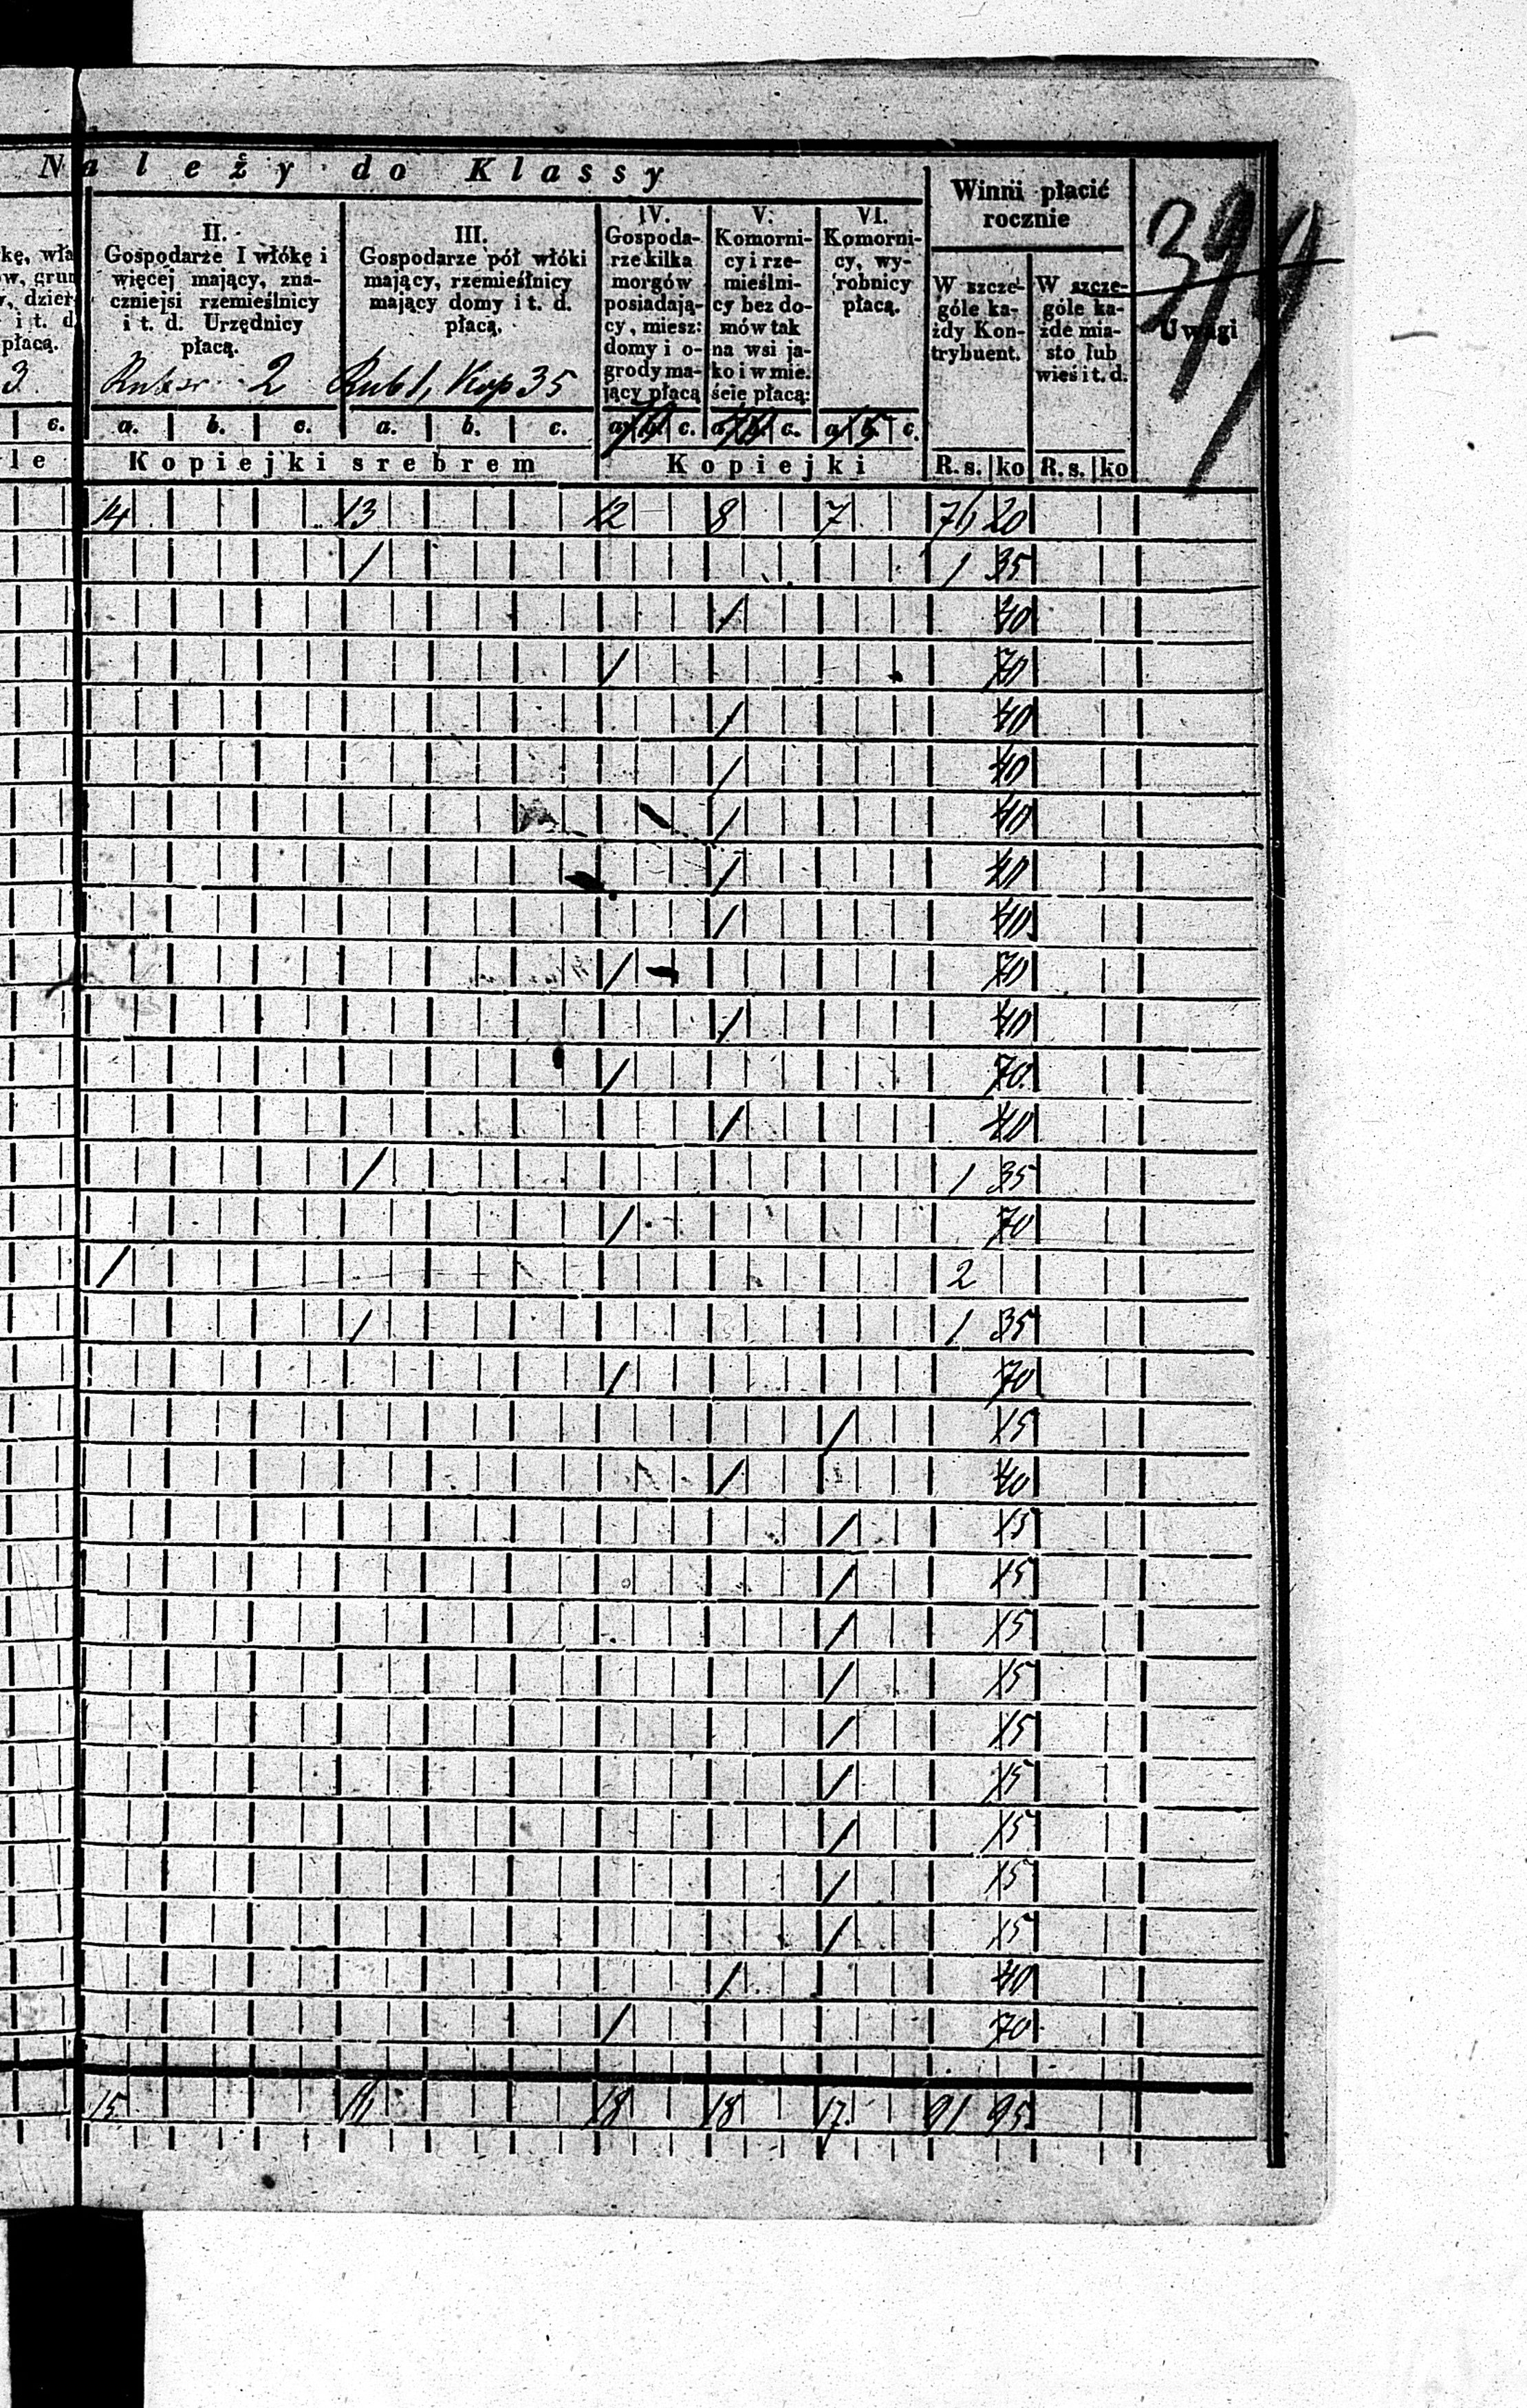 Należy do Klassy
II.
Gospodarze I włókę i
więcej mający, zna-
czniejsi rzemieślnicy
i t. d. Urzędnicy
płacą.
2
III.
Gospodarze pół włóki
mający, rzemieślnicy
mający domy i t. d.
płacą.
Rub 1, Kop 35
IV.
Gospoda-
rze kilka
morgów
posiadają-
cy, miesz:
domy i o-
grody ma-
jący płacą
V.
Komorni-
cy i rze-
mieślni-
cy bez do-
mów tak
na wsi ja-
ko i w mie-
ście płacą:
VI.
Komorni-
cy, wy-
robnicy
płacą.
Winni płacić
rocznie
W szcze-
góle ka-
żdy Kon-
trybuent.
W szcze-
góle ka-
żde mia-
sto lub
wieś i t. d.
Uwagi
kę, wła
ow, grun
, dzier
i t. d
płacą.
3
c. a. b. c. a. b. c. c. c. c.
le Kopiejki srebrem Kopiejki R. s. ko R. s. ko
14 13 12 8 7 76 20
1 1 35
1 40
1 70
1 40
1 40
1 40
1 40
1 40
1 70
1 40
1 70
1 40
1 1 35
1 70
1 2
1 1 35
1 70
1 15
1 40
1 15
1 15
1 15
1 15
1 15
1 15
1 15
1 15
1 15
1 40
1 70
15 16 18 18 17 91 95